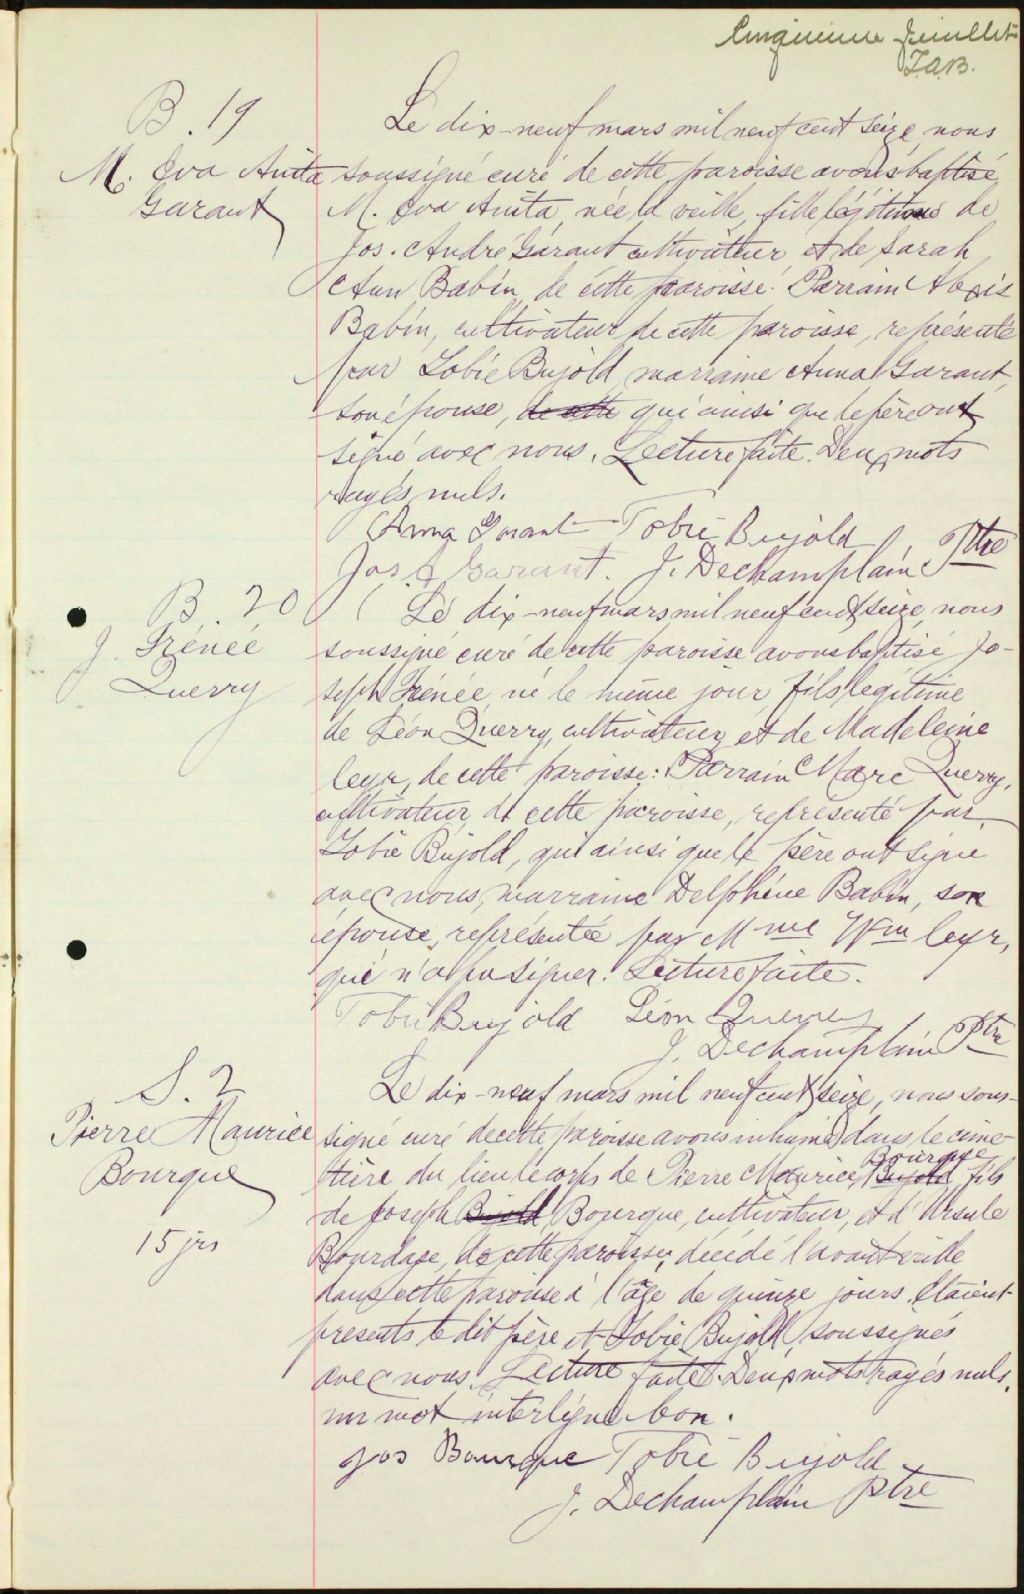 Cinquième feuillet
J.A.B.
B. 19
M. Eva Anita
Garant
Le dix-neuf mars mil neuf cent seize, nous
soussigné curé de cette paroisse avons baptisé
M. Eva Anita, née la veille, fille légitime de
Jos. André Garant cultivateur et de Sarah
Ann Babin de cette paroisse. Parrain Alexis
Babin, cultivateur de cette paroisse, représenté
par Tobie Bujold, marraine Anna Garant,
son épouse, de cette qui ainsi que le père ont
signé avec nous. Lecture faite. Deux mots
rayés nuls.
Anna Garant Tobie Bujold
Jos A Garant. J. Dechamplain Ptre
B. 20
J. Irénée
Querry
Le dix-neuf mars mil neuf cent seize, nous
soussigné curé de cette paroisse avons baptisé Jo-
seph Irénée, né le même jour, fils légitime
de Léon Querry, cultivateur, et de Madeleine
Cyr, de cette paroisse: Parrain Marc Querry,
cultivateur de cette paroisse, représenté par
Tobie Bujold, qui ainsi que le père ont signé
avec nous, marraine Delphine Babin, son
épouse, représentée par Mme Wm Cyr,
qui n'a pu signer. Lecture faite.
Tobie Bujold Léon Querrey
J. Dechamplain Ptre
S. 2
Pierre Maurice
Bourque
15 jrs
Le dix-neuf mars mil neuf cent seize, nous sous-
signé curé de cette paroisse avons inhumé dans le cime-
tière du lieu le corps de Pierre Maurice Bujold Bourque, fils
de Joseph Bujold Bourque, cultivateur, et d'Ursule
Bourdage, de cette paroisse, décédé l'avant veille
dans cette paroisse à l'âge de quinze jours. Etaient
présents le dit père et Tobie Bujold, soussignés
avec nous. Lecture faite. Deux mots rayés nuls,
un mot interligné bon.
Jos Bourque Tobie Bujold
J. Dechamplain Ptre